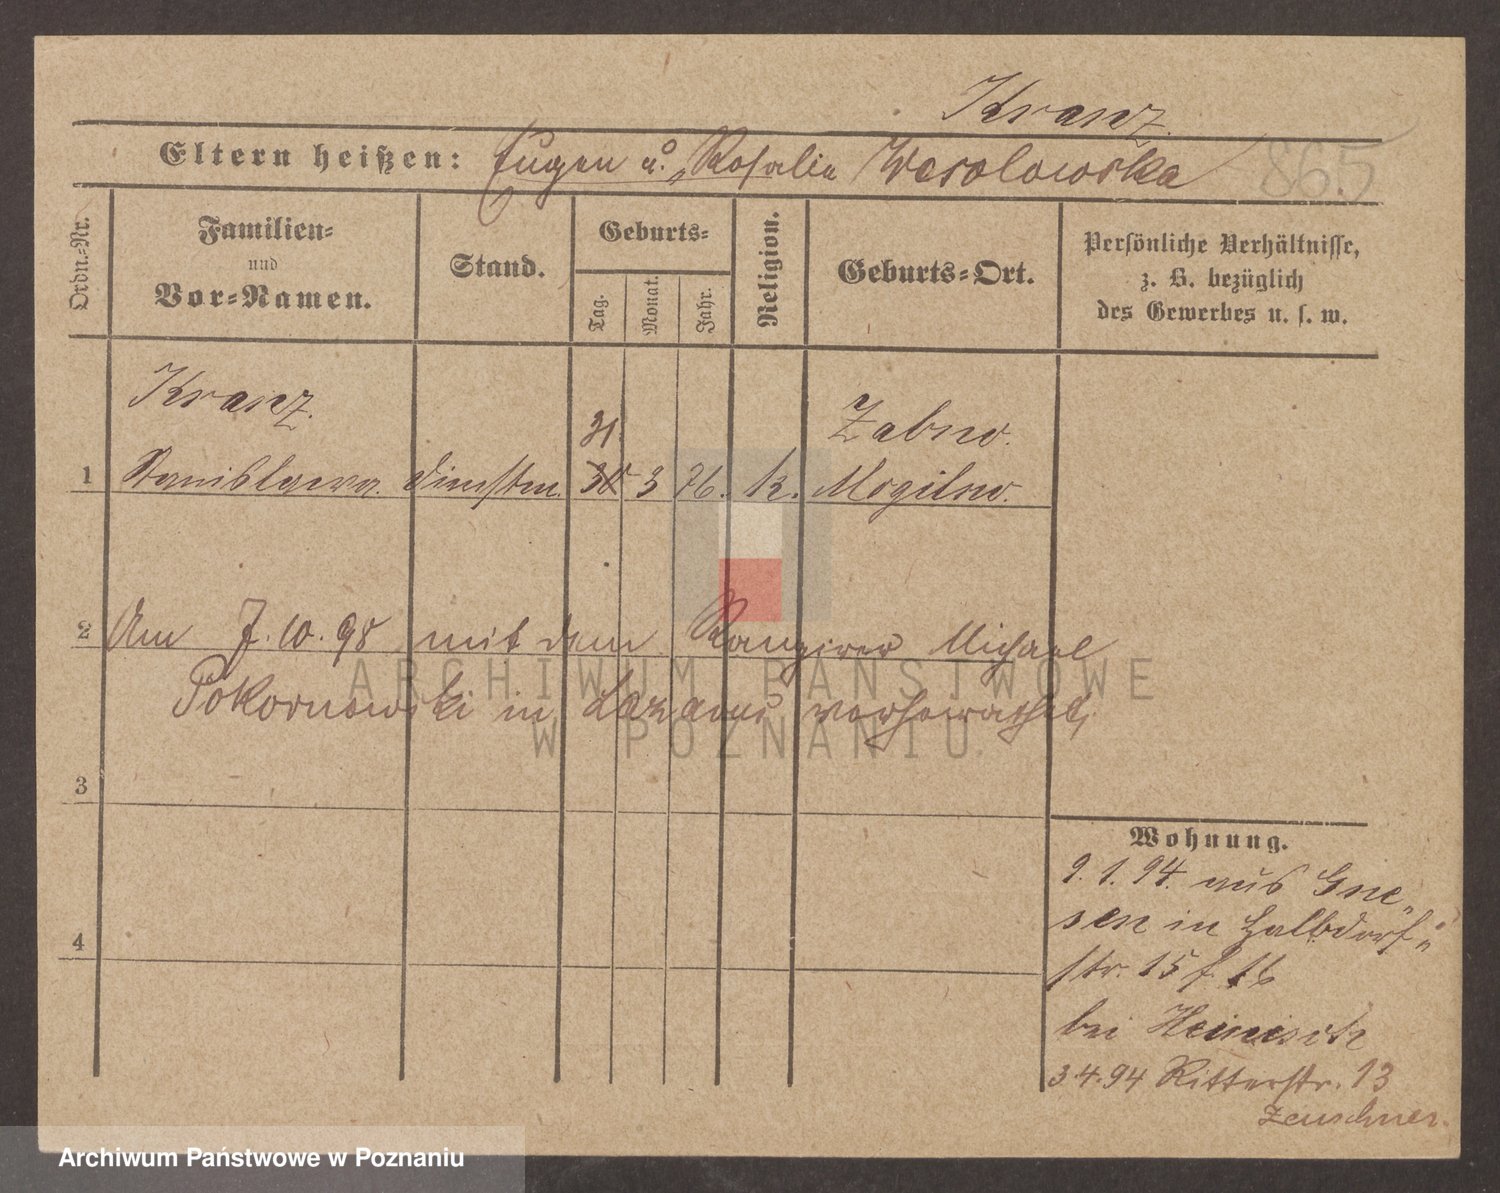 Kranz.
Eltern heißen: Eugen u. Rosalie Wesolowska
865
Ordn.-Nr.
Familien-
und
Vor-Namen.
Stand.
Geburts-
Tag.
Monat.
Jahr.
Religion.
Geburts-Ort.
Persönliche Verhältnisse,
z. B. bezüglich
des Gewerbes u. s. w.
Kranz.
31.
Zabno.
1 Stanislawa. Dienstm. 30 3 76. k. Mogilno.
2 Am 7.10.98 mit dem Rangirer Michael
Pokornowski in Lazarus verheirathet,
3
4
Wohnung.
9.1.94. aus Gne„
sen in Halbdorf„
str. 15 f. 16
bei Heinisch
3.4.94 Ritterstr. 13
Zeuschner.
ARCHIWUM PAŃSTWOWE
W POZNANIU
Archiwum Państwowe w Poznaniu